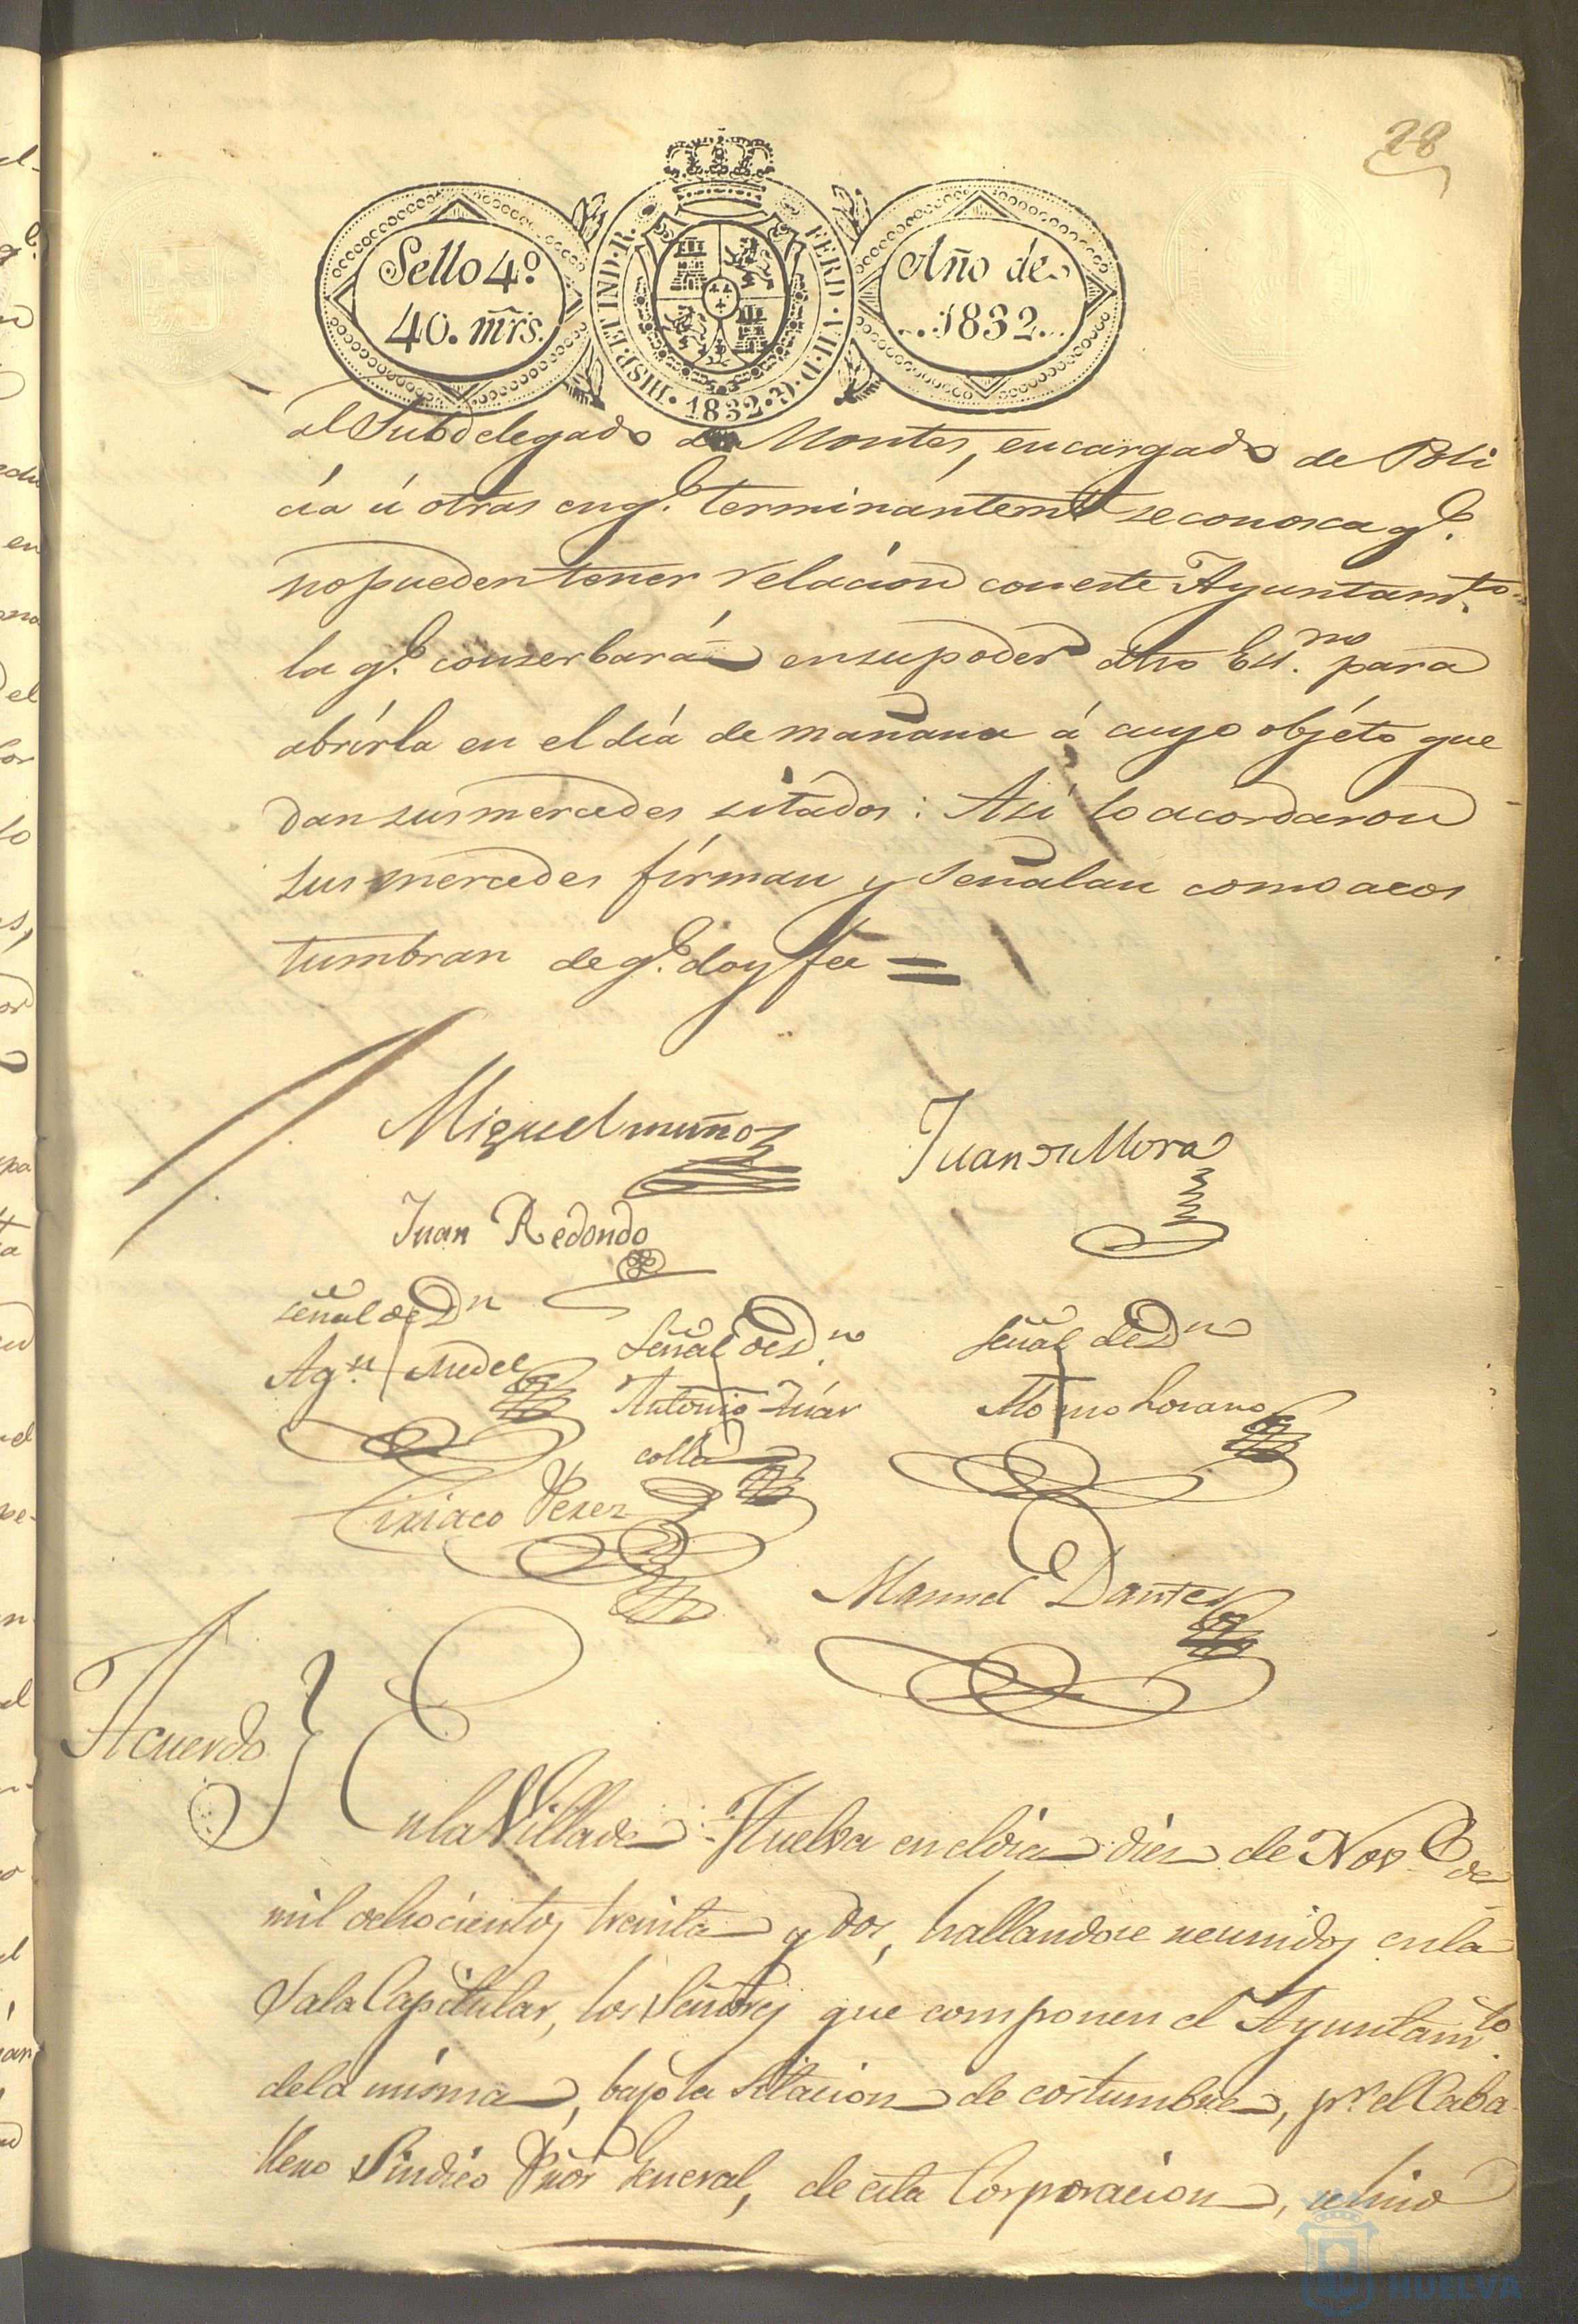 28
Sello 4º
40. mrs.
HISP. ET IND. R.
FERD. VII. D. G.
1832
Año de
1832
al Subdelegado de Montes, encargado de Poli
cia ú otras en q.e terminántemte se conosca q.e
no pueden tener relacion con este Ayuntam.to
la q.e conserbará en su poder dho Es.no para
abrirla en el dia de mañana á cuyo objéto que
dan sus mercedes sitados: Así lo acordaron
sus mercedes firman y señalan como acos
tumbran de q.e doy fee =
Miguel muñoz
Juan de Mora
Juan Redondo
señal de Dn
Ag.n Medel
Señal de D.n
Antonio
colla
señal de Dn
Lorano
Ciriaco Perez
Manuel Dantes
Acuerdo
En la Villa de Huelva en el dia dies de Nov.e de
mil ochocientos treinta y dos, hallandose reunidos en la
Sala Capitular, los Señores que componen el Ayuntam.to
dela misma, bajo la sitacion de costumbre, pr. el Caba
llero Sindico Pror General, de esta Corporacion, se hiso
HUELVA